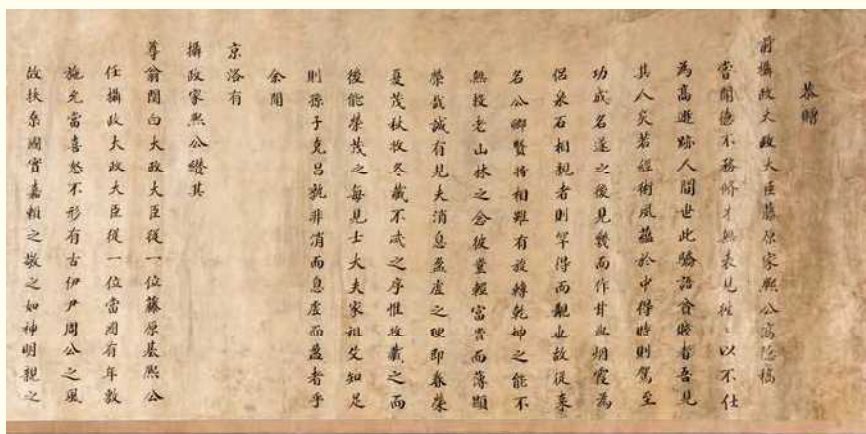 恭贈
前攝政太政大臣藤原家熙公高隱稿
嘗聞德不務脩才無表見徃〻以不仕
為高遯跡人間世此驕語者吾見
其人矣若經術夙蘊於中得時則駕至
功成名遂之後見幾而作甘与烟霞為
侶泉石相親者則罕得而覯也故從来
名公卿賢將相雖有旋轉乾坤之能不
無投老山林之念彼豈輕富貴而薄顯
榮哉誠有見夫消息盈虚之理即春榮
夏茂秋收冬藏不忒之序惟收藏之而
後能榮茂之每見士大夫家祖父知足
則孫子克昌孰非消而息虚而盈者乎
余聞
京洛有
攝政家熙公纘其
尊翁関白太政大臣從一位藤原基熙公
任攝政太政大臣從一位當國有年敷
施允當喜怒不形有古伊尹周公之風
故扶桑國實嘉頼之敬之如神明親之